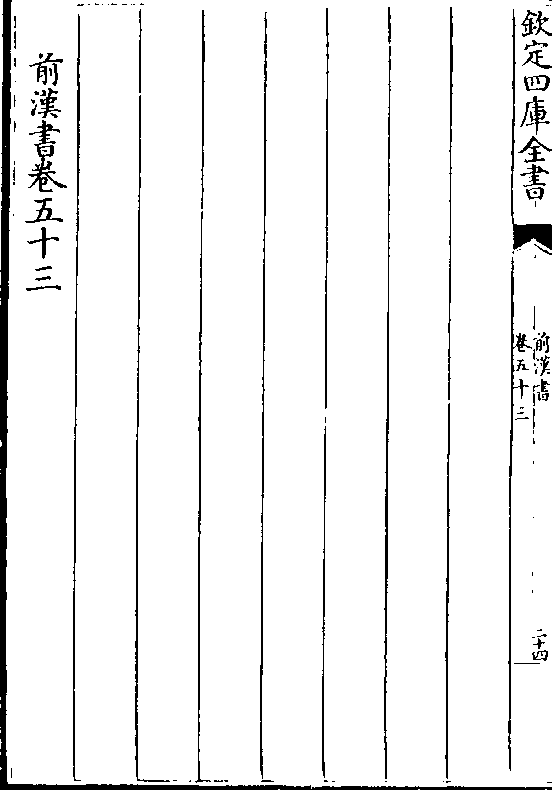 欽定四庫全書
前漢書
卷五十三
二十四
前漢書卷五十三